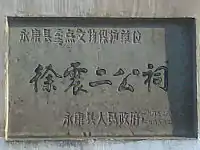 永康县重点文物保护单位
徐震二公祠
永康县人民政府